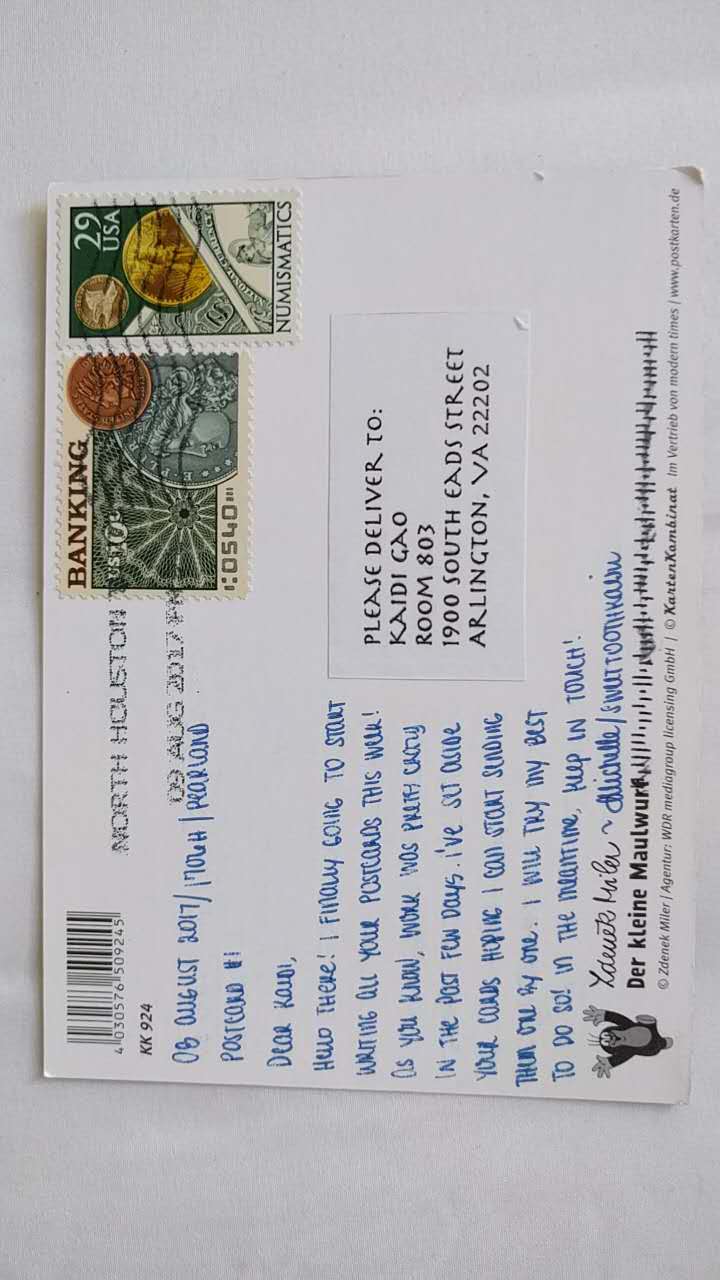 4 030576 509245
KK 924
NORTH HOUSTON
09 AUG 2017 PM
BANKING
US 10c
29
USA
NUMISMATICS
08 AUGUST 2017/1702H/PEARLAND
POSTCARD #1
DEAR KAIDI,
HELLO THERE! I FINALLY GOING TO START
WRITING ALL YOUR POSTCARDS THIS WEEK!
AS YOU KNOW, WORK WAS PRETTY CRAZY
IN THE PAST FEW DAYS. I'VE SET ASIDE
YOUR CARDS HOPING I CAN START SENDING
THEM ONE BY ONE. I WILL TRY MY BEST
TO DO SO! IN THE MEANTIME, KEEP IN TOUCH!
~ Michelle/
PLEASE DELIVER TO:
KAIDI GAO
ROOM 803
1900 SOUTH EADS STREET
ARLINGTON, VA 22202
Zdeněk Miler
Der kleine Maulwurf
© Zdenek Miler | Agentur: WDR mediagroup licensing GmbH | © KartenKombinat Im Vertrieb von modern times | www.postkarten.de